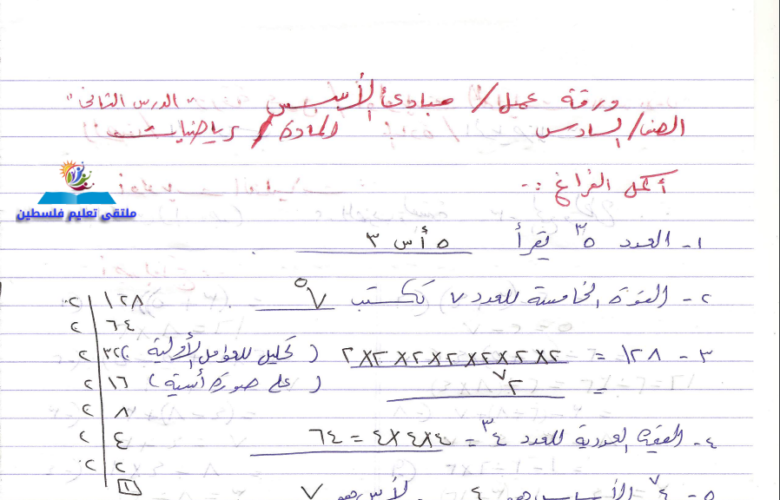 ورقة عمل / مبادئ الأسس "الدرس الثاني"
الصف / السادس المادة / رياضيات
أكمل الفراغ :-
ملتقى تعليم فلسطين
١- العدد ٥³ يقرأ ٥ أس ٣
٢- القوة الخامسة للعدد ٧ تكتب ٧⁵
٣- ١٢٨ = ٢×٢×٢×٢×٢×٢×٢ (تحليل للعوامل الأولية)
= ٢⁷ (على صورة أسية)
٤- القيمة العددية للعدد ٤³ = ٤×٤×٤ = ٦٤
٥- ٤⁷ الأساس هو ٤ الأس هو ٧
١٢٨ ٢
٦٤ ٢
٣٢ ٢
١٦ ٢
٨ ٢
٤ ٢
٢ ٢
١